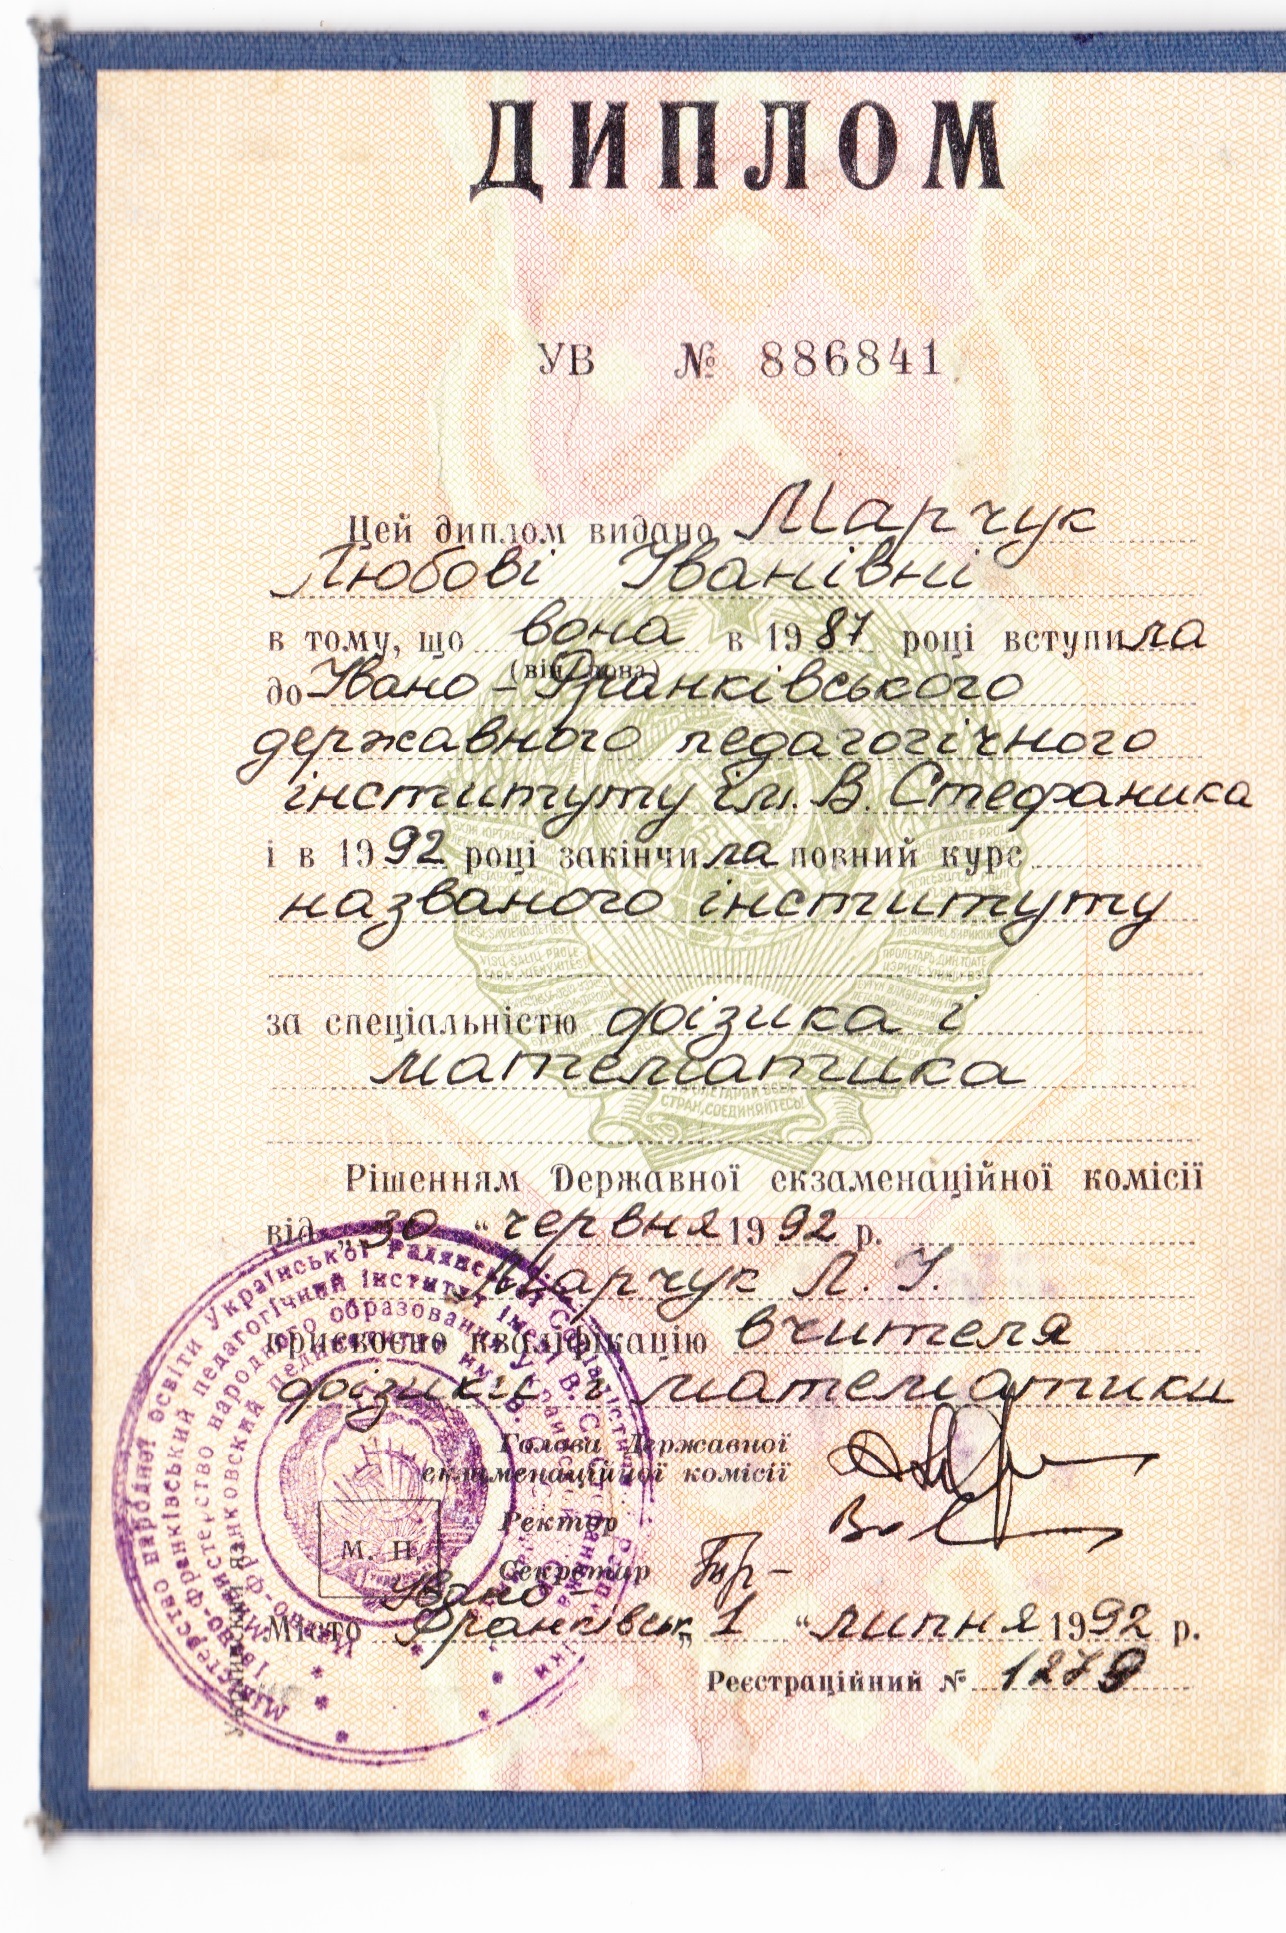 ДИПЛОМ
УВ № 886841
Цей диплом видано Марчук
Любові Іванівні
в тому, що вона в 1987 році вступила
(він, вона)
до Івано-Франківського
державного педагогічного
інституту ім. В. Стефаника
і в 1992 році закінчила повний курс
названого інституту
за спеціальністю фізика і
математика
Рішенням Державної екзаменаційної комісії
від „30“ червня 1992 р.
Марчук Л. І.
присвоєно кваліфікацію вчителя
фізики і математики
Голова Державної
екзаменаційної комісії
Ректор
Секретар
М. П.
Місто Івано-
Франківськ „1“ липня 1992 р.
Реєстраційний № 1279
Міністерство народної освіти Української Радянської
Івано-Франківський педагогічний інститут ім. В. С.
Министерство народного образования
СТРАН, СОЕДИНЯЙТЕСЬ!